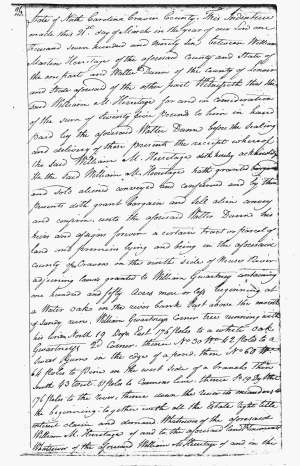 State of North Carolina Craven County. This Indenture
made this 21st day of March in the year of our Lord one
thousand seven hundred and ninety between William
Martin Herritage of the aforesaid county and State of
the one part and Walter Dunn of the County of Lenoir
and State aforesaid of the other part Witnesseth that the
said William M. Herritage for and in consideration
of the sum of twenty five pounds to him in hand
paid by the aforesaid Walter Dunn before the Sealing
and delivery of these presents the receipt whereof
the said William M. Herritage doth hereby acknowledge
He the said William M. Herritage hath granted bargained
and sold aliened conveyed and confirmed and by these
presents doth grant bargain and sell alien convey
and confirm unto the aforesaid Walter Dunn his
heirs and assigns forever a certain tract or parcel of
land and premises lying and being in the aforesaid
county of Craven in the north side of Neuse River
adjoining lands granted to William containing
one hundred and fifty acres more or less beginning at
a Water Oak on the river bank just above the mouth
of Sandy run, William corner tree running with
his line North 19 Degs East 176 poles to a white Oak
2d Corner, thence No 30 Wt 62 poles to a
Sweet Gum in the edge of a pond, then No 68 Wt
64 poles to Pine in the west side of a branch then
South 63 West poles to line thence So 19 Degs West
176 poles to the river, thence down the river its meanders to
the beginning. together with all the Estate right title
interest claim and demand Whatsoever of the aforesaid
William M. Herritage of and to the aforesaid land
Whatsoever of the aforesaid William M. Herritage of and in the